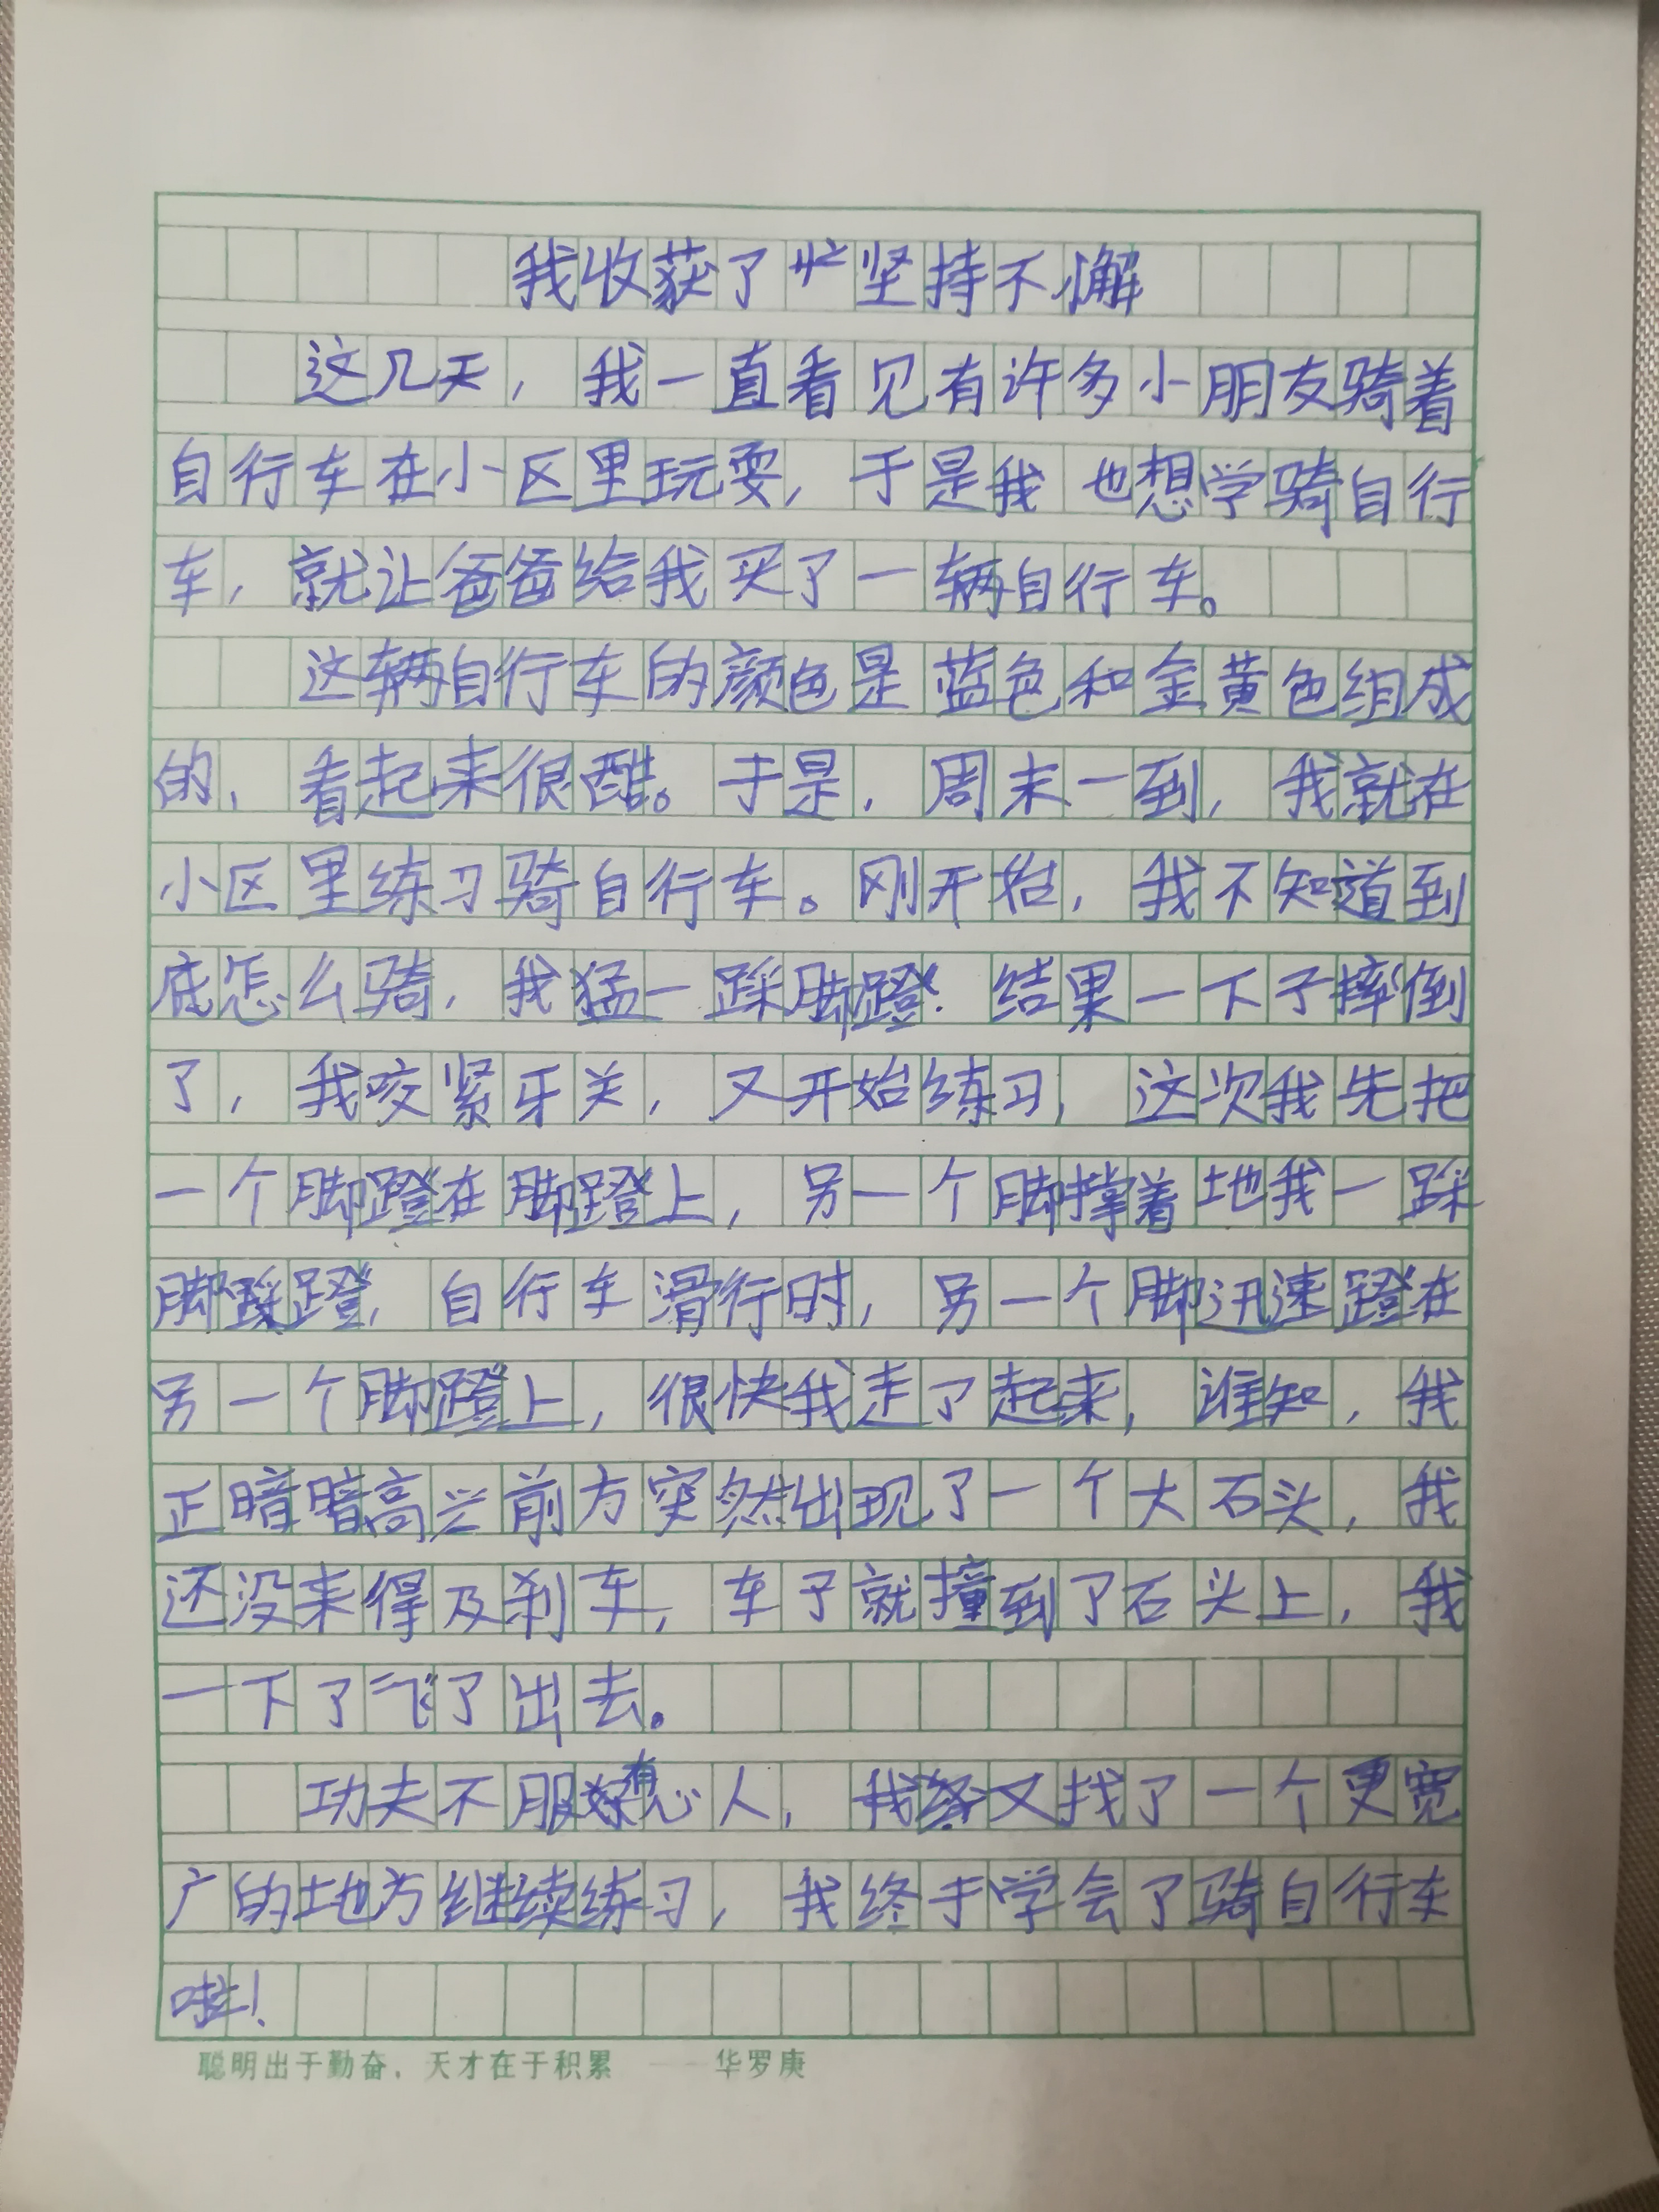 我收获了坚持不懈
这几天，我一直看见有许多小朋友骑着
自行车在小区里玩耍，于是我也想学骑自行
车，就让爸爸给我买了一辆自行车。
这辆自行车的颜色是蓝色和金黄色组成
的，看起来很酷。于是，周末一到，我就在
小区里练习骑自行车。刚开始，我不知道到
底怎么骑，我猛一踩脚蹬．结果一下子摔倒
了，我咬紧牙关，又开始练习，这次我先把
一个脚蹬在脚蹬上，另一个脚撑着地我一踩
脚蹬，自行车滑行时，另一个脚迅速蹬在
另一个脚蹬上，很快我走了起来，谁知，我
正暗暗高兴前方突然出现了一个大石头，我
还没来得及刹车，车子就撞到了石头上，我
一下了飞了出去。
功夫不服有心人，我又找了一个更宽
广的地方继续练习，我终于学会了骑自行车
啦！
聪明出于勤奋，天才在于积累 ——华罗庚